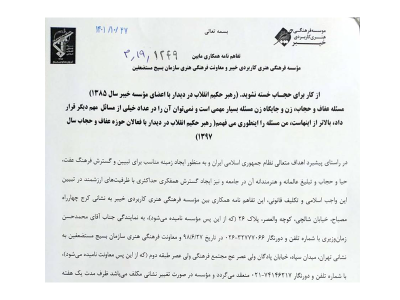 بسمه تعالی
موسسه فرهنگی
هنری کاربردی
خیبر
۱۴۰۱/۱۰/۲۷
۳,۱۹,۱۲۴۹
تفاهم نامه همکاری مابین
مؤسسه فرهنگی هنری کاربردی خیبر و معاونت فرهنگی هنری سازمان بسیج مستضعفین
از کار برای حجاب خسته نشوید. (رهبر حکیم انقلاب در دیدار با اعضای مؤسسه خیبر سال ۱۳۸۵)
مسئله عفاف و حجاب، زن و جایگاه زن مسئله بسیار مهمی است و نمی‌توان آن را در عداد خیلی از مسائل مهم دیگر قرار
داد، بالاتر از اینهاست، من مسئله را اینطوری می فهمم( رهبر حکیم انقلاب در دیدار با فعالان حوزه عفاف و حجاب سال
۱۳۹۷)
در راستای پیشبرد اهداف متعالی نظام جمهوری اسلامی ایران و به منظور ایجاد زمینه مناسب برای تبیین و گسترش فرهنگ عفت،
حیا و حجاب و تبلیغ عالمانه و هنرمندانه آن در جامعه و نیز ایجاد گسترش همفکری حداکثری با ظرفیت‌های ارزشمند در تبیین
این واجب اسلامی و تکلیف قانونی، این تفاهم نامه همکاری بین مؤسسه فرهنگی هنری کاربردی خیبر به نشانی کرج چهارراه
مصباح، خیابان شالچی، کوچه والعصر، پلاک ۲۶ (که از این پس مؤسسه نامیده می‌شود)، به نمایندگی جناب آقای محمدحسن
زمان‌وزیری با شماره تلفن و دورنگار ۰۲۶-۳۲۷۷۷۰۶۶ در تاریخ ۹۸/۶/۲۷ و معاونت فرهنگی هنری سازمان بسیج مستضعفین به
نشانی تهران، میدان سپاه، خیابان پادگان ولی عصر عج مجتمع فرهنگی ولی عصر طبقه دوم (که از این پس معاونت نامیده می‌شود)،
با شماره تلفن و دورنگار ۰۲۱-۷۴۱۴۶۲۱۷ منعقد می‌گردد و مؤسسه در صورت تغییر نشانی مکلف می‌باشد ظرف مدت یک هفته